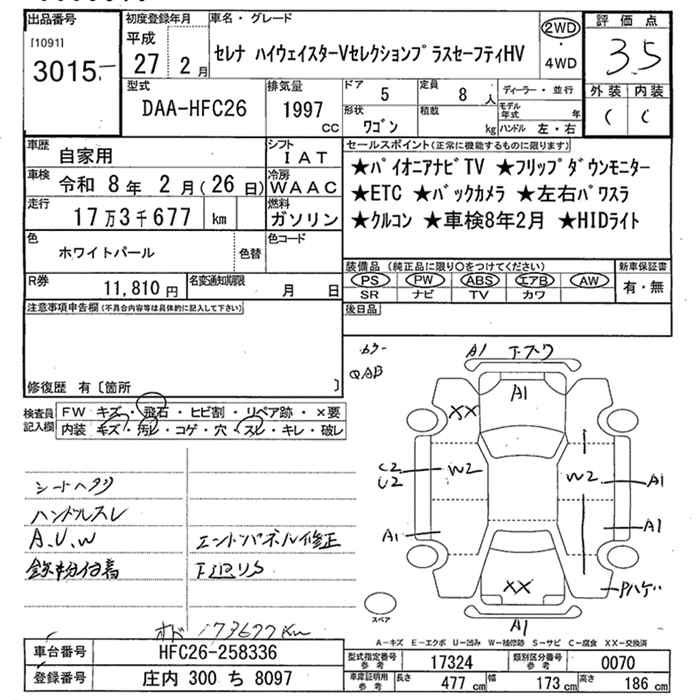 出品番号
[1091]
3015
初度登録年月
平成
27 2 月
車名・グレード
セレナ ハイウェイスターVセレクションプラスセーフティHV
2WD
・
4WD
評価点
3.5
外装 内装
C C
型式
DAA-HFC26
排気量
1997
CC
ドア
5
定員
8 人
形状
ワゴン
積載
kg
ディーラー・並行
モデル年式 年
ハンドル 左・右
車歴
自家用
シフト
IAT
車検 令和 8年 2月(26日)
冷房
WAAC
走行
17万3千677 km
燃料
ガソリン
色
ホワイトパール
色替
色コード
R券
11,810 円
名変通知期限
月 日
セールスポイント(正常に機能するものに限ります)
★パイオニアナビTV ★フリップダウンモニター
★ETC ★バックカメラ ★左右パワスラ
★クルコン ★車検8年2月 ★HIDライト
装備品 (純正品に限り○をつけてください)
PS PW ABS エアB AW
SR ナビ TV カワ
新車保証書
有・無
後日品
注意事項申告欄(不具合内容等は具体的に記入して下さい)
修復歴 有〔箇所 〕
検査員記入欄
FW キズ・飛石・ヒビ割・リペア跡・×要
内装 キズ・汚レ・コゲ・穴・スレ・キレ・破レ
シートヘタリ
ハンドルスレ
A.U.W
鉄粉付着
エンドパネル修正
オド 173677km
A1
A1
XX
C2
U2
W2
W2
A1
A1
A1
XX
Pハゲ
A1
スペア
A-キズ E-エクボ U-凹み W-補修跡 S-サビ C-腐食 XX-交換済
車台番号
HFC26-258336
登録番号
庄内 300 ち 8097
型式指定番号
参考
17324
類別区分番号
参考
0070
車庫証明用
参考
長さ 477 cm
幅 173 cm
高さ 186 cm